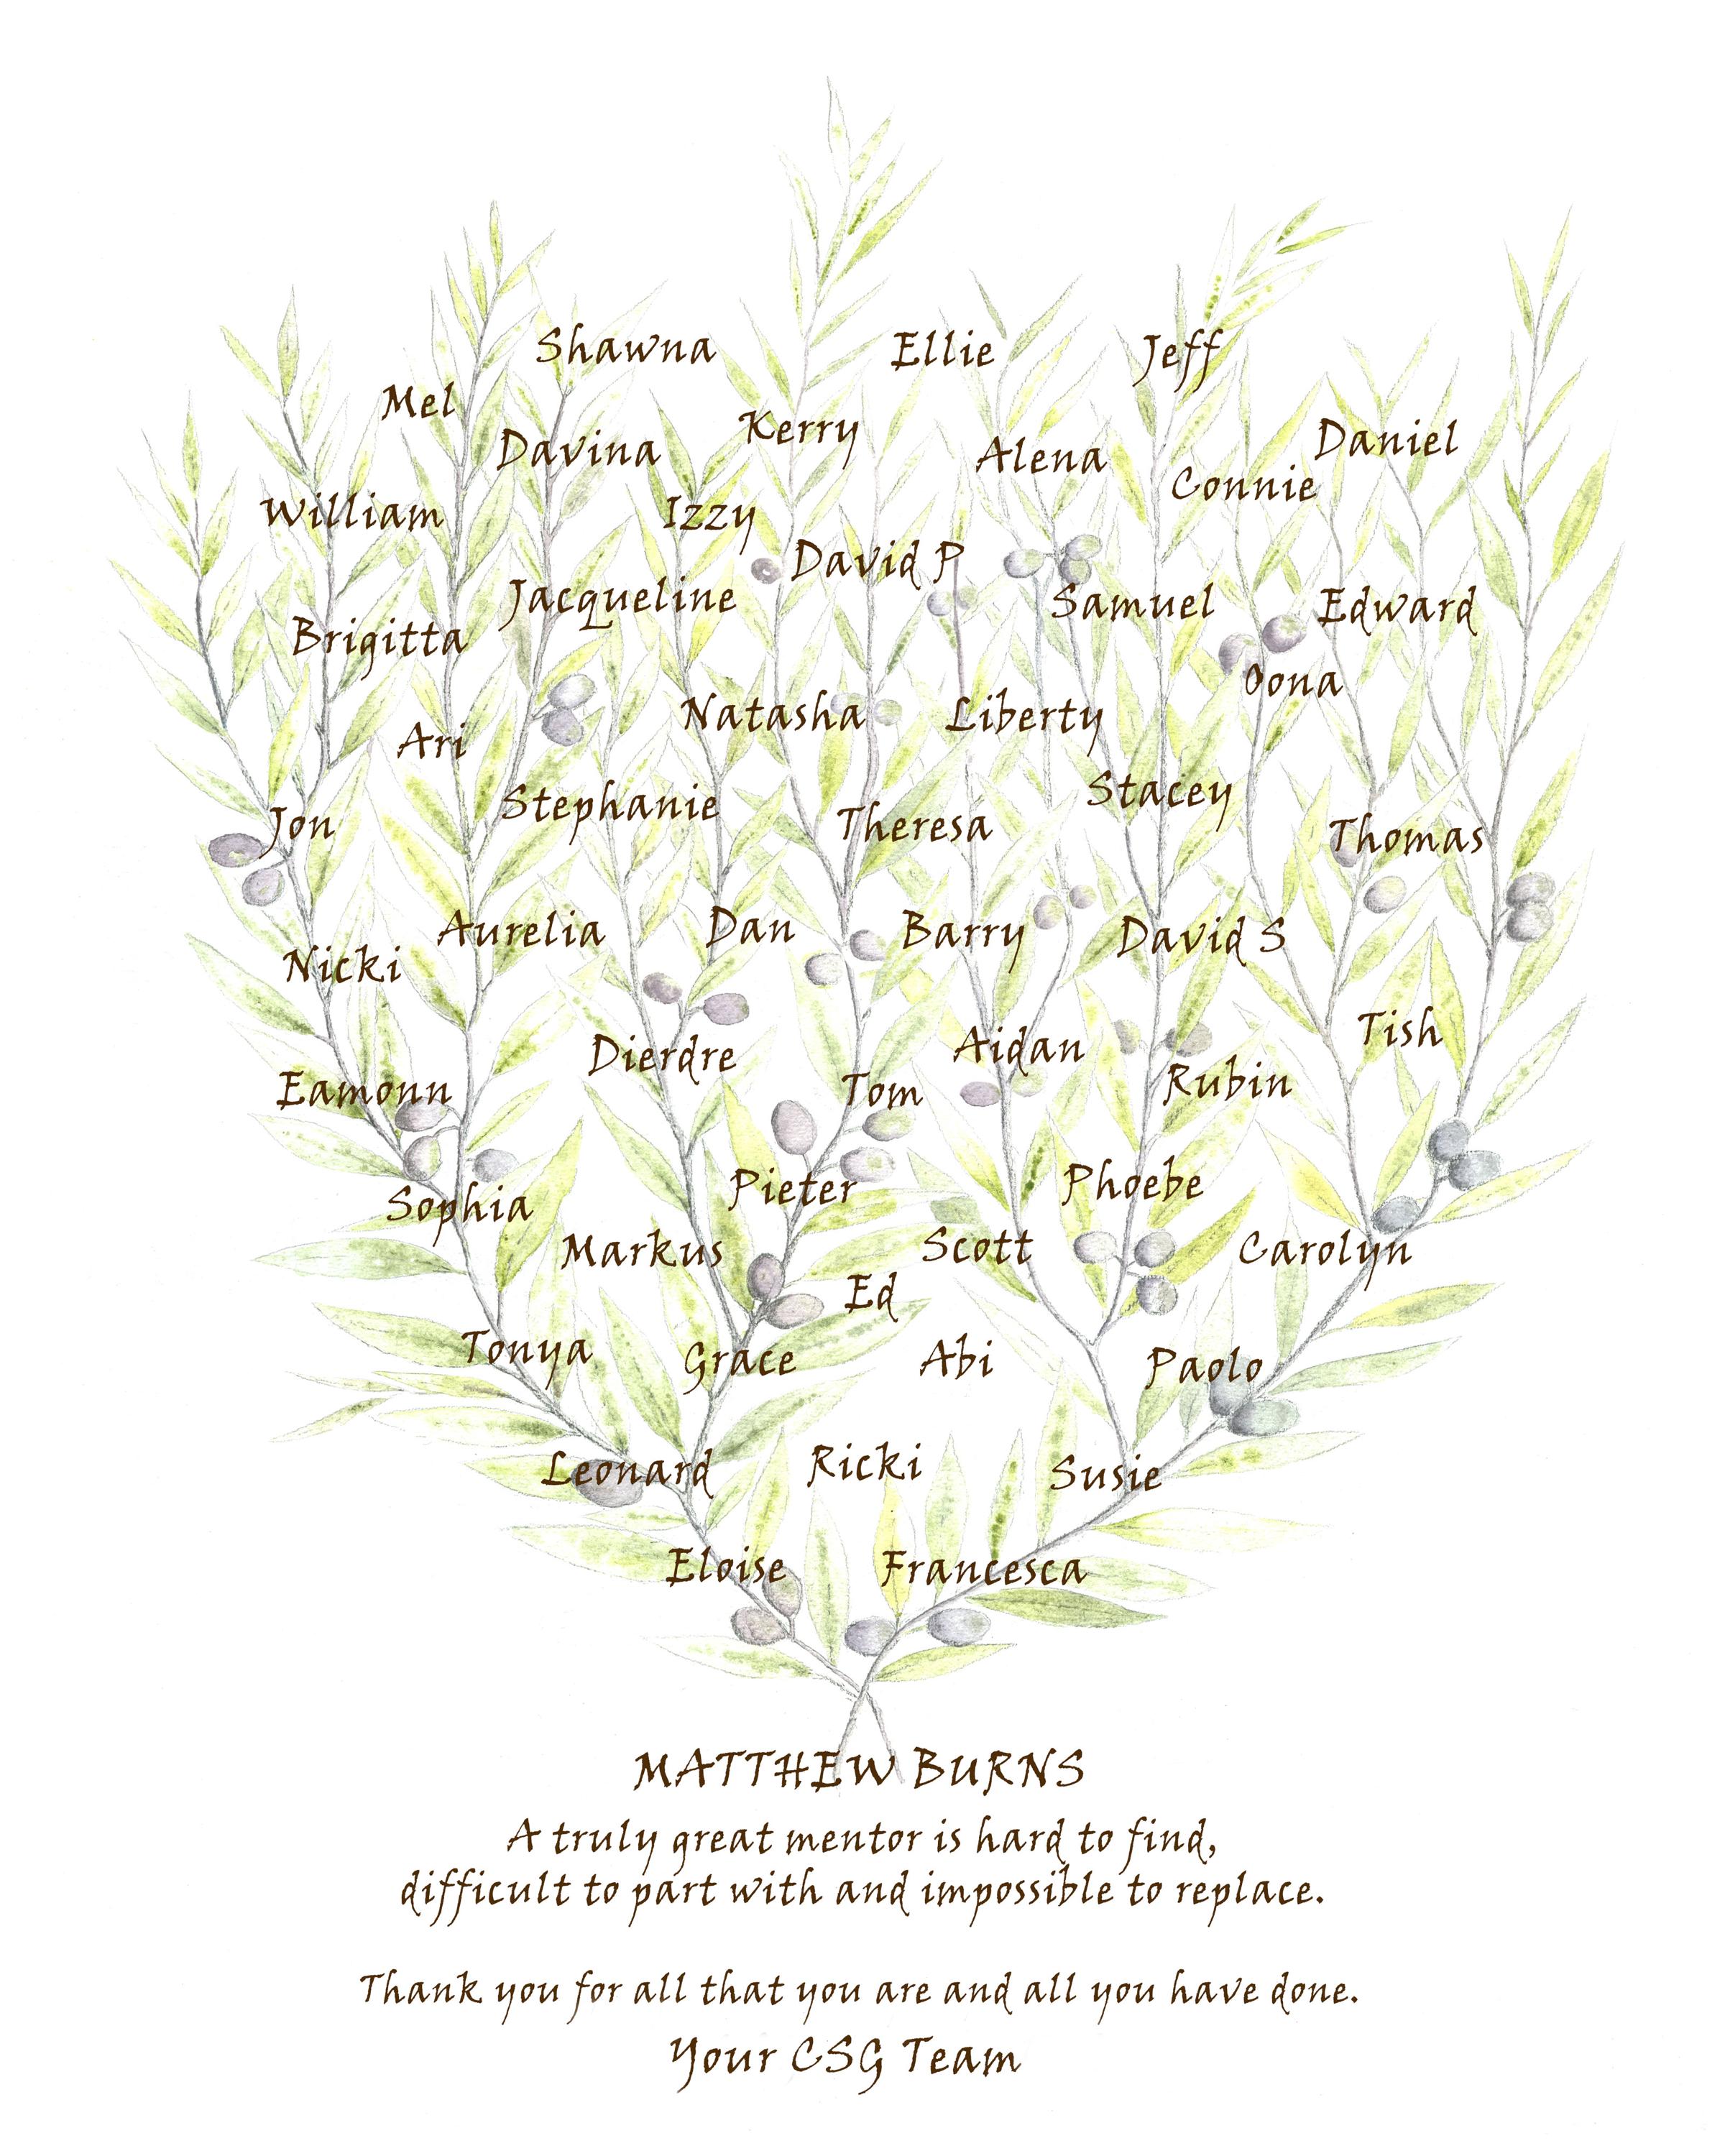 Shawna
Ellie
Jeff
Mel
Kerry
Davina
Alena
Daniel
Connie
William
Izzy
David P
Jacqueline
Samuel
Edward
Brigitta
Oona
Natasha
Liberty
Ari
Stephanie
Stacey
Jon
Theresa
Thomas
Aurelia
Dan
Barry
David S
Nicki
Dierdre
Aidan
Tish
Eamonn
Tom
Rubin
Pieter
Phoebe
Sophia
Markus
Scott
Carolyn
Ed
Tonya
Grace
Abi
Paolo
Leonard
Ricki
Susie
Eloise
Francesca
MATTHEW BURNS
A truly great mentor is hard to find,
difficult to part with and impossible to replace.
Thank you for all that you are and all you have done.
Your CSG Team